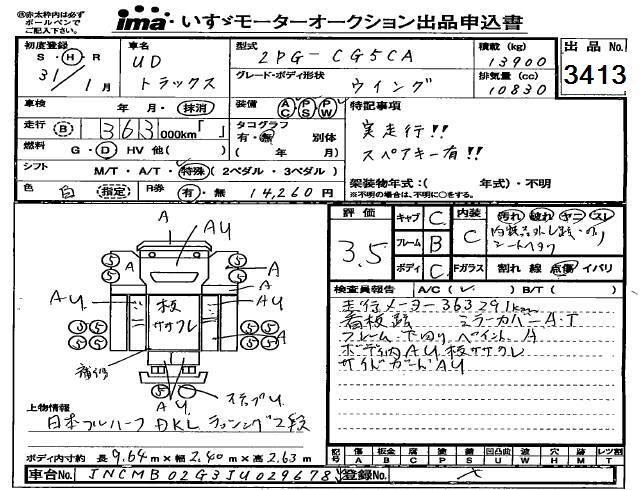 ㊟赤太枠内は必ず
ボールペンで
ご記入下さい。
ima・いすゞモーターオークション出品申込書
初度登録 S・H・R 31/1月
車名 UD トラックス
型式 2PG-CG5CA
グレード・ボディ形状 ウイング
積載 (kg) 13900
排気量 (cc) 10830
出品 No. 3413
車検 年・月・抹消
装備 AC PS PW
特記事項
走行 B 363000km「 」
タコグラフ 有・無 別体
( 年 月)
実走行!!
スペアキー有!!
燃料 G・D HV 他( )
シフト M/T・A/T・特殊(2ペダル・3ペダル)
架装物年式:( 年式)・不明
※不明の場合は、不明に○をする。
色 白 指定 R券 有・無 14,260円
評価 3.5
キャブ C
フレーム B
ボディ C
内装 C
汚れ 破れ ヤニ スレ
Fガラス 割れ 線 点傷 イバリ
検査員報告 A/C( ) B/T( )
走行メーター363291km
看板跡 ミラーカバーA.I
フレーム下回りペイント A
ボディ内AU,板ササクレ
サイドガードAU
A
AU
A
A
AU
板
ササクレ
AU
A
補修
ステップU.
AU
上物情報
日本フルハーフ DKL ラッシング2段
ボディ内寸約 長9.64m×幅2.40m×高2.63m
記号 傷 板金 腐 塗 錆 凹凸曲 波 穴 跡 レツ割
A B C P S U W H M T
車台No. JNCMB02G3JU029678
登録No.